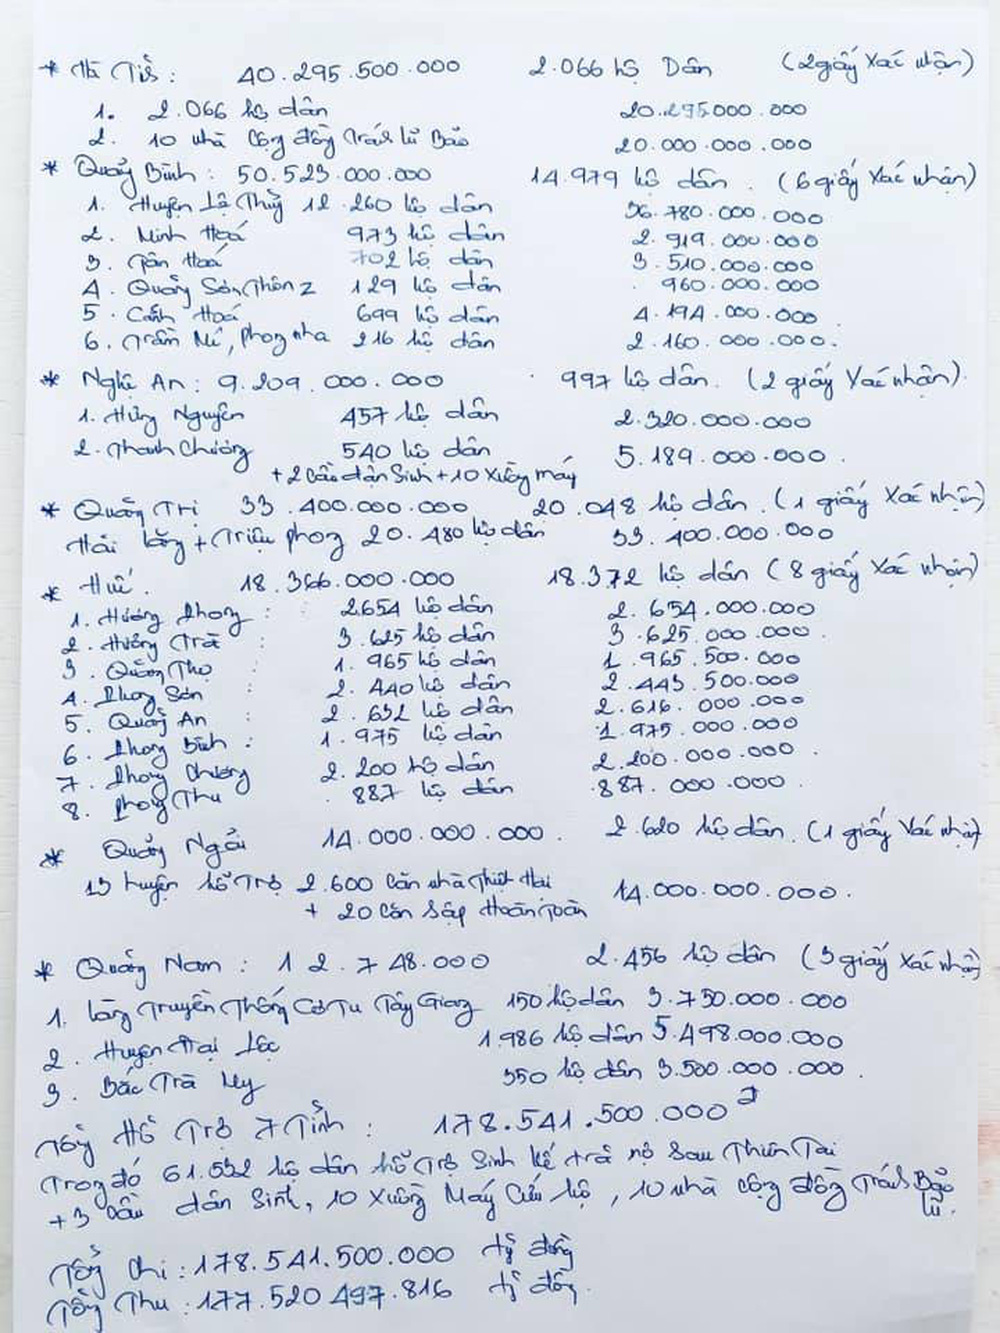 * Hà Tĩnh : 40.295.500.000 2.066 hộ Dân (2 giấy Xác nhận)
1. 2.066 hộ dân 20.295.000.000
2. 10 nhà Cộng đồng tránh lũ Bão 20.000.000.000
* Quảng Bình : 50.523.000.000 14.979 hộ dân. (6 giấy Xác nhận)
1. Huyện Lệ Thủy 12.260 hộ dân 36.780.000.000
2. Minh Hoá 973 hộ dân 2.919.000.000
3. Tân Hoá 702 hộ dân 3.510.000.000
4. Quảng Sơn, Thôn 2 129 hộ dân 960.000.000
5. Cảnh Hoá 699 hộ dân 4.194.000.000
6. Trầm Mé, Phong nha 216 hộ dân 2.160.000.000.
* Nghệ An : 9.209.000.000 997 hộ dân. (2 giấy Xác nhận).
1. Hưng Nguyên 457 hộ dân 2.320.000.000
2. Thanh Chương 540 hộ dân 5.189.000.000.
+ 2 cầu dân Sinh + 10 xuồng máy
* Quảng Trị 33.400.000.000 20.048 hộ dân. (1 giấy Xác nhận)
Hải Lăng + Triệu phong 20.480 hộ dân 33.400.000.000
* Huế. 18.366.000.000 18.372 hộ dân (8 giấy Xác nhận)
1. Hương Phong : 2654 hộ dân 2.654.000.000
2. Hương Trà : 3.625 hộ dân 3.625.000.000.
3. Quảng Thọ : 1.965 hộ dân 1.965.500.000
4. Phong Sơn : 2.440 hộ dân 2.443.500.000
5. Quảng An : 2.632 hộ dân 2.616.000.000
6. Phong Bình : 1.975 hộ dân 1.975.000.000
7. Phong Chương 2.200 hộ dân 2.200.000.000.
8. Phong Thu 887 hộ dân 887.000.000
* Quảng Ngãi 14.000.000.000. 2.620 hộ dân. (1 giấy Xác nhận)
13 huyện hỗ Trợ 2.600 Căn nhà Thiệt Hại 14.000.000.000.
+ 20 Căn Sập Hoàn Toàn
* Quảng Nam : 12.748.000 2.456 hộ dân (3 giấy Xác nhận)
1. Làng Truyền Thống Cơ Tu Tây Giang 150 hộ dân 3.750.000.000
2. Huyện Đại Lộc 1.986 hộ dân 5.498.000.000
3. Bắc Trà My 350 hộ dân 3.500.000.000.
Tổng Hỗ Trợ 7 Tỉnh : 178.541.500.000 đ
Trong đó 61.532 hộ dân hỗ Trợ Sinh kế trả nợ Sau Thiên Tai
+ 3 Cầu dân Sinh, 10 xuồng Máy Cứu hộ, 10 nhà Cộng đồng Tránh Bão
lũ.
Tổng Chi : 178.541.500.000 tỷ đồng
Tổng Thu : 177.520.497.816 tỷ đồng.